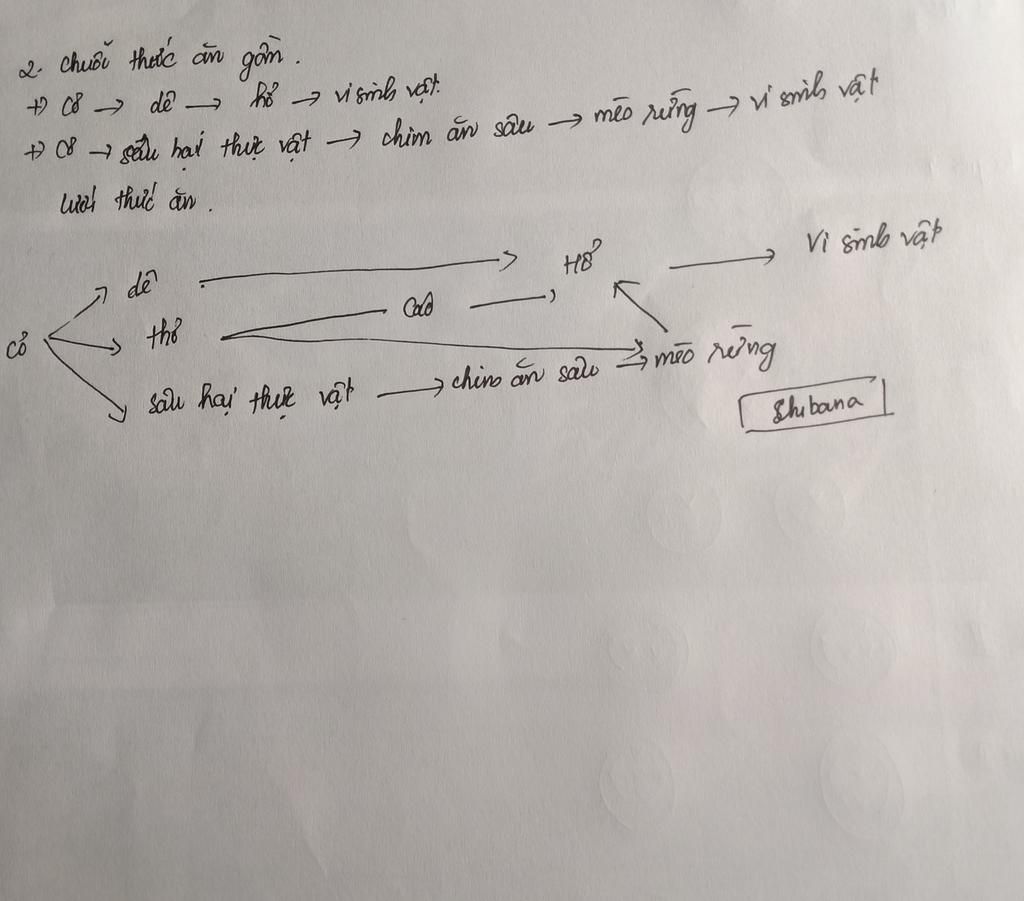 2. chuỗi thức ăn gồm.
+) cỏ → dê → hổ → vi sinh vật.
+) cỏ → sâu hại thực vật → chim ăn sâu → mèo rừng → vi sinh vật
lưới thức ăn.
dê → Hổ → Vi sinh vật
cỏ thỏ cáo → mèo rừng
sâu hại thực vật → chim ăn sâu →
Shibana